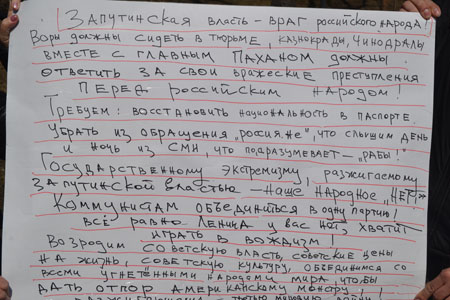 Запутинская власть – враг российского народа!
Воры должны сидеть в тюрьме, казнокрады, чинодралы
вместе с главным Паханом должны
ответить за свои вражеские преступления
перед российским народом!
Требуем: восстановить национальность в паспорте.
Убрать из обращения „россия.не", что слышим день
и ночь из СМИ, что подразумевает – „рабы".
Государственному экстремизму, разжигаемому
запутинской властью – наше народное „нет!"
Коммунистам объединиться в одну партию!
Всё равно Ленина у вас нет, хватит
играть в вождизм!
Возродим советскую власть, советские цены
на жизнь, советскую культуру, объединимся со
всеми угнетёнными народами мира, чтобы
дать отпор американскому монстру!